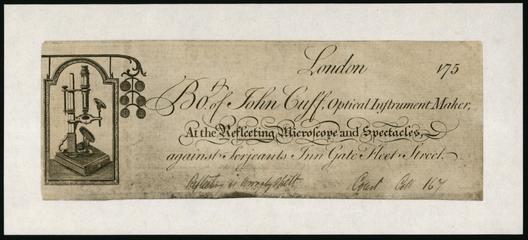 London 175
Bot. of John Cuff, Optical Instrument Maker,
At the Reflecting Microscope and Spectacles,
against Serjeants Inn Gate Fleet-Street.
Court Coll 167